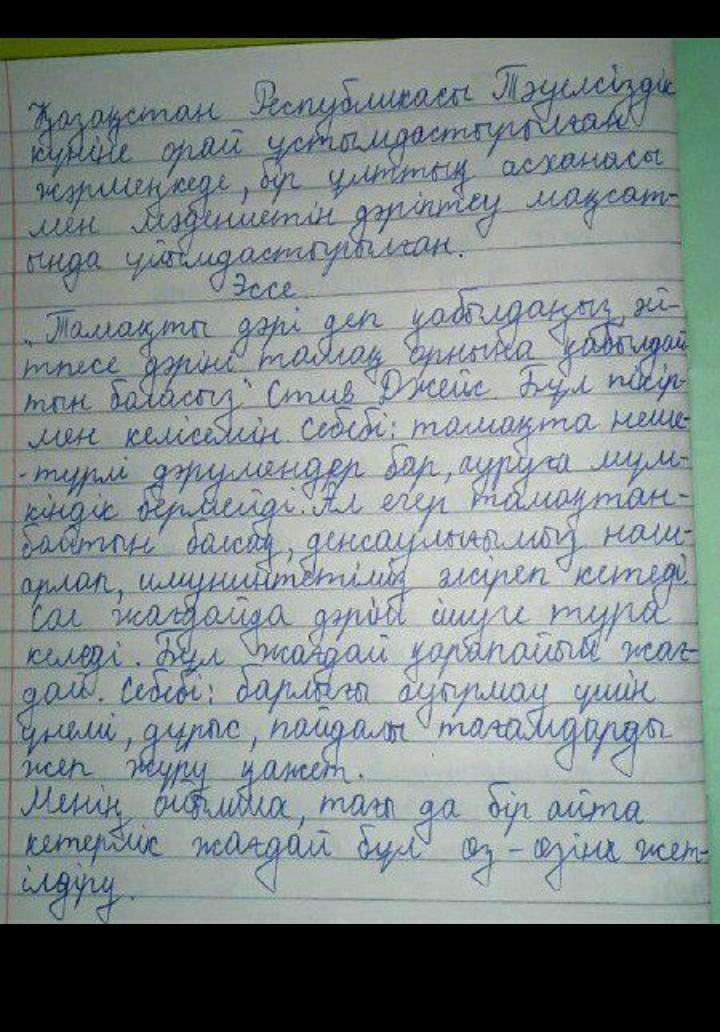 Қазақстан Республикасы Тәуелсіздік
күніне орай ұстымдастырылған
жәрмеңкеде, бір ұлттың асханасы
мен мәдениетін дәріптеу мақсат-
ында ұйымдастырылған.
Эссе.
"Тамақты дәрі деп қабылдаңыз, әй-
тпесе дәріні тамақ орнына қабылдай
тын боласыз" Стив Джейс. Бұл пікір-
мен келісемін. Себебі: тамақта неше-
-түрлі дәрумендер бар, ауруға мүм-
кіндік бермейді. Ал егер тамақтан-
байтын болсақ, денсаулығымыз наш-
арлап, имунийтетіміз әлсіреп кетеді.
Сол жағдайда дәріні ішуге тура
келеді. Бұл жағдай қарапайым жағ-
дай. Себебі: барлығы ауырмау үшін
үнемі, дұрыс, пайдалы тағамдарды
жеп жүру қажет.
Менің ойымша, тағы да бір айта
кетерлік жағдай бұл өз-өзіне жет-
ілдіру.